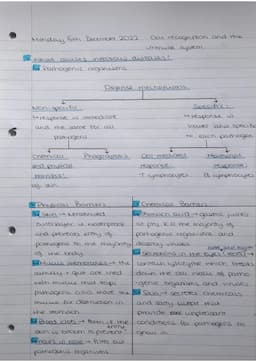 Monday 5th December 2022 Cell recognition and the
immune system
What causes infectious diseases?
Pathogenic organisms
Defense mechanisms
Non-specific: Specific:
↳ response is immediate ↳ response is
and the same for all slower and specific
pathogens to each pathogen
Chemical Phagocytosis Cell mediated Humoral
and physical response: response:
barriers: T lymphocytes B lymphocytes
eg. skin
Physical Barriers
Skin → keratinised
outer layer is waterproof
and prevents entry of
pathogens to the majority
of the body
Mucus membranes → the
airways + gut are lined
with mucus that traps
pathogens and moves the
mucus for destruction in
the stomach
Blood clots → form if the
skin is broken to prevent entry
Hairs in nose → filters out
pathogenic organisms
Chemical Barriers
Stomach acid → gastric juices
so pH kills the majority of
pathogenic organisms and
destroy viruses
Secretions in the eyes (tears) →
contain lysozyme which breaks
down the cell walls of patho
-genic organisms and viruses
Skin → secretes chemicals
and salty sweat that
provide poor
conditions for pathogens to
grow in